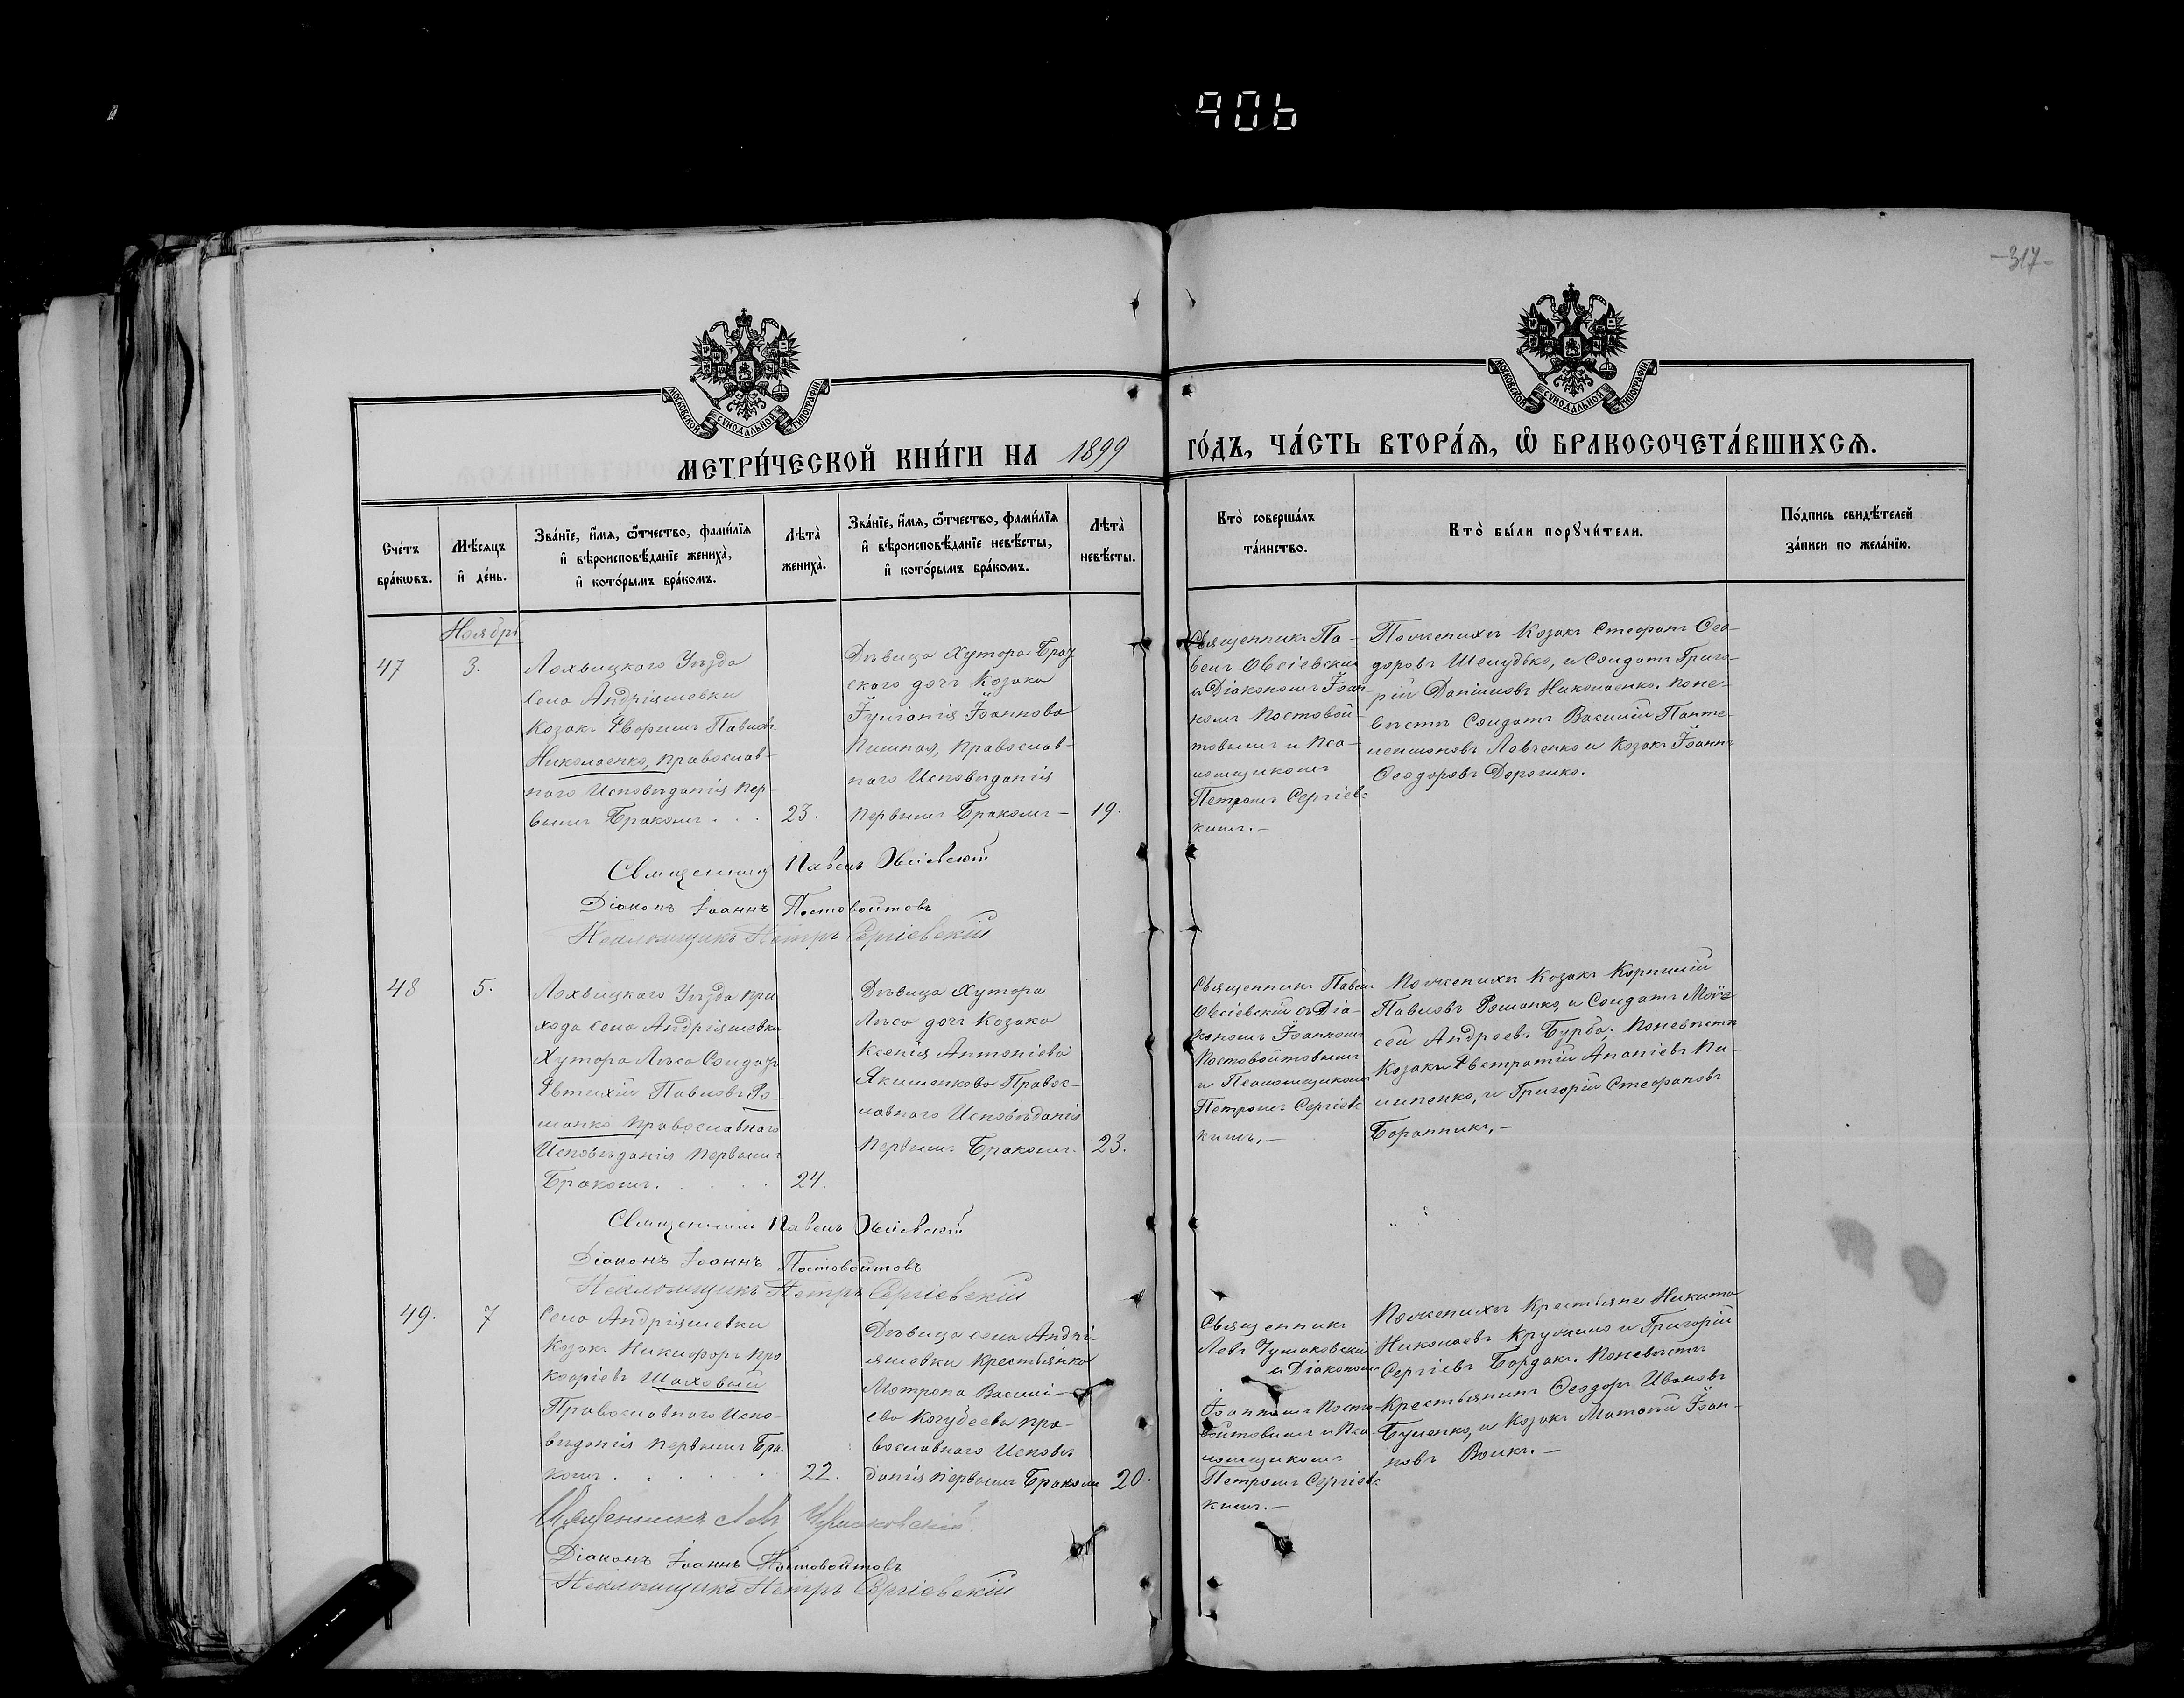 906
-317-
МОСКОВСКОЙ СѴНОДАЛЬНОЙ ТИПОГРАФІИ
МОСКОВСКОЙ СѴНОДАЛЬНОЙ ТИПОГРАФІИ
МЕТРИ́ЧЕСКОЙ КНИ́ГИ НА 1899 ГО́ДЪ, ЧА́СТЬ ВТОРА́Ѧ, Ѡ҆ БРАКОСОЧЕТА́ВШИХСѦ.
Сче́тъ
бра́кѡвъ.
Мѣ́сяцъ
и҆ де́нь.
Зва́нїе, и҆́мѧ, ѻ҆́тчество, фами́лїѧ
и҆ вѣроисповѣ́данїе жениха̀,
и҆ кото́рымъ бра́комъ.
Лѣта̀
жениха̀.
Зва́нїе, и҆́мѧ, ѻ҆́тчество, фами́лїѧ
и҆ вѣроисповѣ́данїе невѣ́сты,
и҆ кото́рымъ бра́комъ.
Лѣта̀
невѣ́сты.
Кто̀ соверша́лъ
та́инство.
Кто̀ бы́ли порꙋчи́тели.
По́дпись свидѣ́телей
за́писи по жела́нїю.
Ноябрь
47
3.
Лохвицкаго Уѣзда
Села Андріяшевки
Козакъ Павловъ
Николаенко, православ-
наго Исповѣданія пер-
вымъ Бракомъ . . .
23.
Дѣвица Хутора
скаго дочь Козака
Іуліанія Іоаннова
православ-
наго Исповѣданія
первымъ Бракомъ –
19.
Священникъ Па-
велъ Овсіевскій
съ Діакономъ Іоан-
номъ Постовой-
товымъ и Пса-
ломщикомъ
Петромъ Сергіевс-
кимъ.–
По женихѣ Козакъ Стефанъ Ѳео-
доровъ Шелудько, и Солдатъ Григо-
рій Даніиловъ Николаенко. по не-
вѣстѣ Солдатъ Василій Панте-
леимоновъ Левченко и Козакъ Іоаннъ
Ѳеодоровъ Дорошко.
Священникъ Павелъ Овсіевскій
Діаконъ Іоаннъ Постовойтовъ
Псаломщикъ Петръ Сергіевскій
48
5.
Лохвицкаго Уѣзда при
хода села Андріяшевки
Хутора Лѣса Солдатъ
Евтихій Павловъ Ро-
манко православнаго
Исповѣданія первымъ
Бракомъ. . . . .
24.
Дѣвица Хутора
Лѣса дочь Козака
Ксенія Антоніева
Якименкова Правос-
лавнаго Исповѣданія
первымъ Бракомъ.
23.
Священникъ Павелъ
Овсіевскій съ Діа-
кономъ Іоанномъ
Постовойтовымъ
и Псаломщикомъ
Петромъ Сергіевс-
кимъ,–
По женихѣ Козакъ Корнилій
Павловъ Романко, и Солдатъ Мойсе-
сей Андреевъ Бурба; по невѣстѣ
Козаки Евстратій Ананіевъ Пи-
липенко, и Григорій Стефановъ
Баранникъ,–
Священникъ Павелъ Овсіевскій
Діаконъ Іоаннъ Постовойтовъ
Псаломщикъ Петръ Сергіевскій
49.
7
Села Андріяшевки
Козакъ Никифоръ Про
кофіевъ Шаховый
Православнаго Испо-
вѣданія первымъ Бра-
комъ . . . . .
22.
Дѣвица села Андрі-
яшевки Крестьянка
Матрона Василі-
ева Кочубеева пра-
вославнаго Исповѣ
данія первымъ Бракомъ
20.
Священникъ
Левъ Чушаковскій
съ Діакономъ
Іоанномъ Посто-
войтовымъ и Пса-
ломщикомъ
Петромъ Сергіевс-
кимъ.–
По женихѣ Крестьяне Никита
Николаевъ и Григорій
Сергіевъ Бардакъ. по невѣстѣ
Крестьянинъ Ѳеодоръ Ивановъ
Буленко, и Козакъ Матѳій Іоан-
новъ Волкъ.–
Священникъ Левъ Чушаковскій
Діаконъ Іоаннъ Постовойтовъ
Псаломщикъ Петръ Сергіевскій